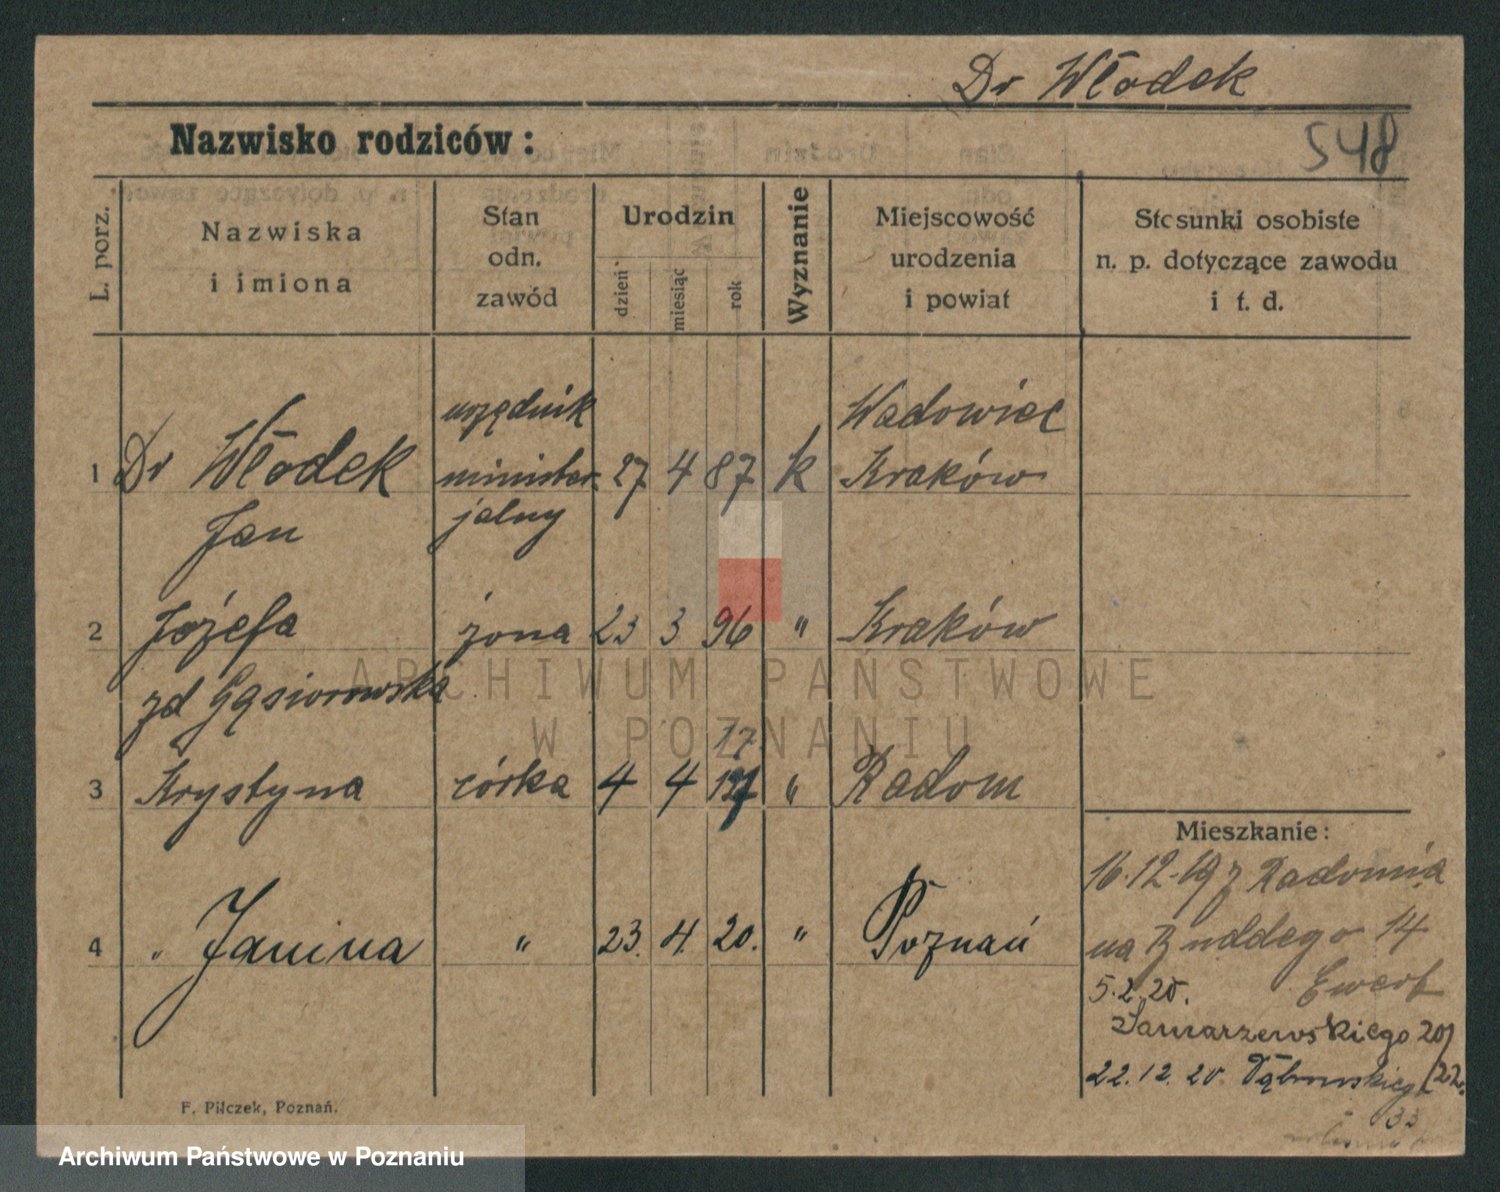 Dr Włodek
Nazwisko rodziców:
548
L. porz.
Nazwiska
i imiona
Stan
odn.
zawód
Urodzin
dzień
miesiąc
rok
Wyznanie
Miejscowość
urodzenia
i powiat
Stosunki osobiste
n. p. dotyczące zawodu
i t. d.
urzędnik
Wadowice
1 Dr Włodek minister- 27 4 87 k Kraków
Jan jalny
2 Józefa żona 23 3 96 " Kraków
zd Gąsiorowska
17
3 Krystyna córka 4 4 " Radom
Mieszkanie:
16.12.19 z Radomia
4 " Janina " 23. 4. 20. " Poznań
na 14
5.2.20. Ewert
Jamarzewskiego 20/
22.12.20. Dąbrowskieg 22.
33
F. Pilczek, Poznań.
ARCHIWUM PAŃSTWOWE
W POZNANIU
Archiwum Państwowe w Poznaniu